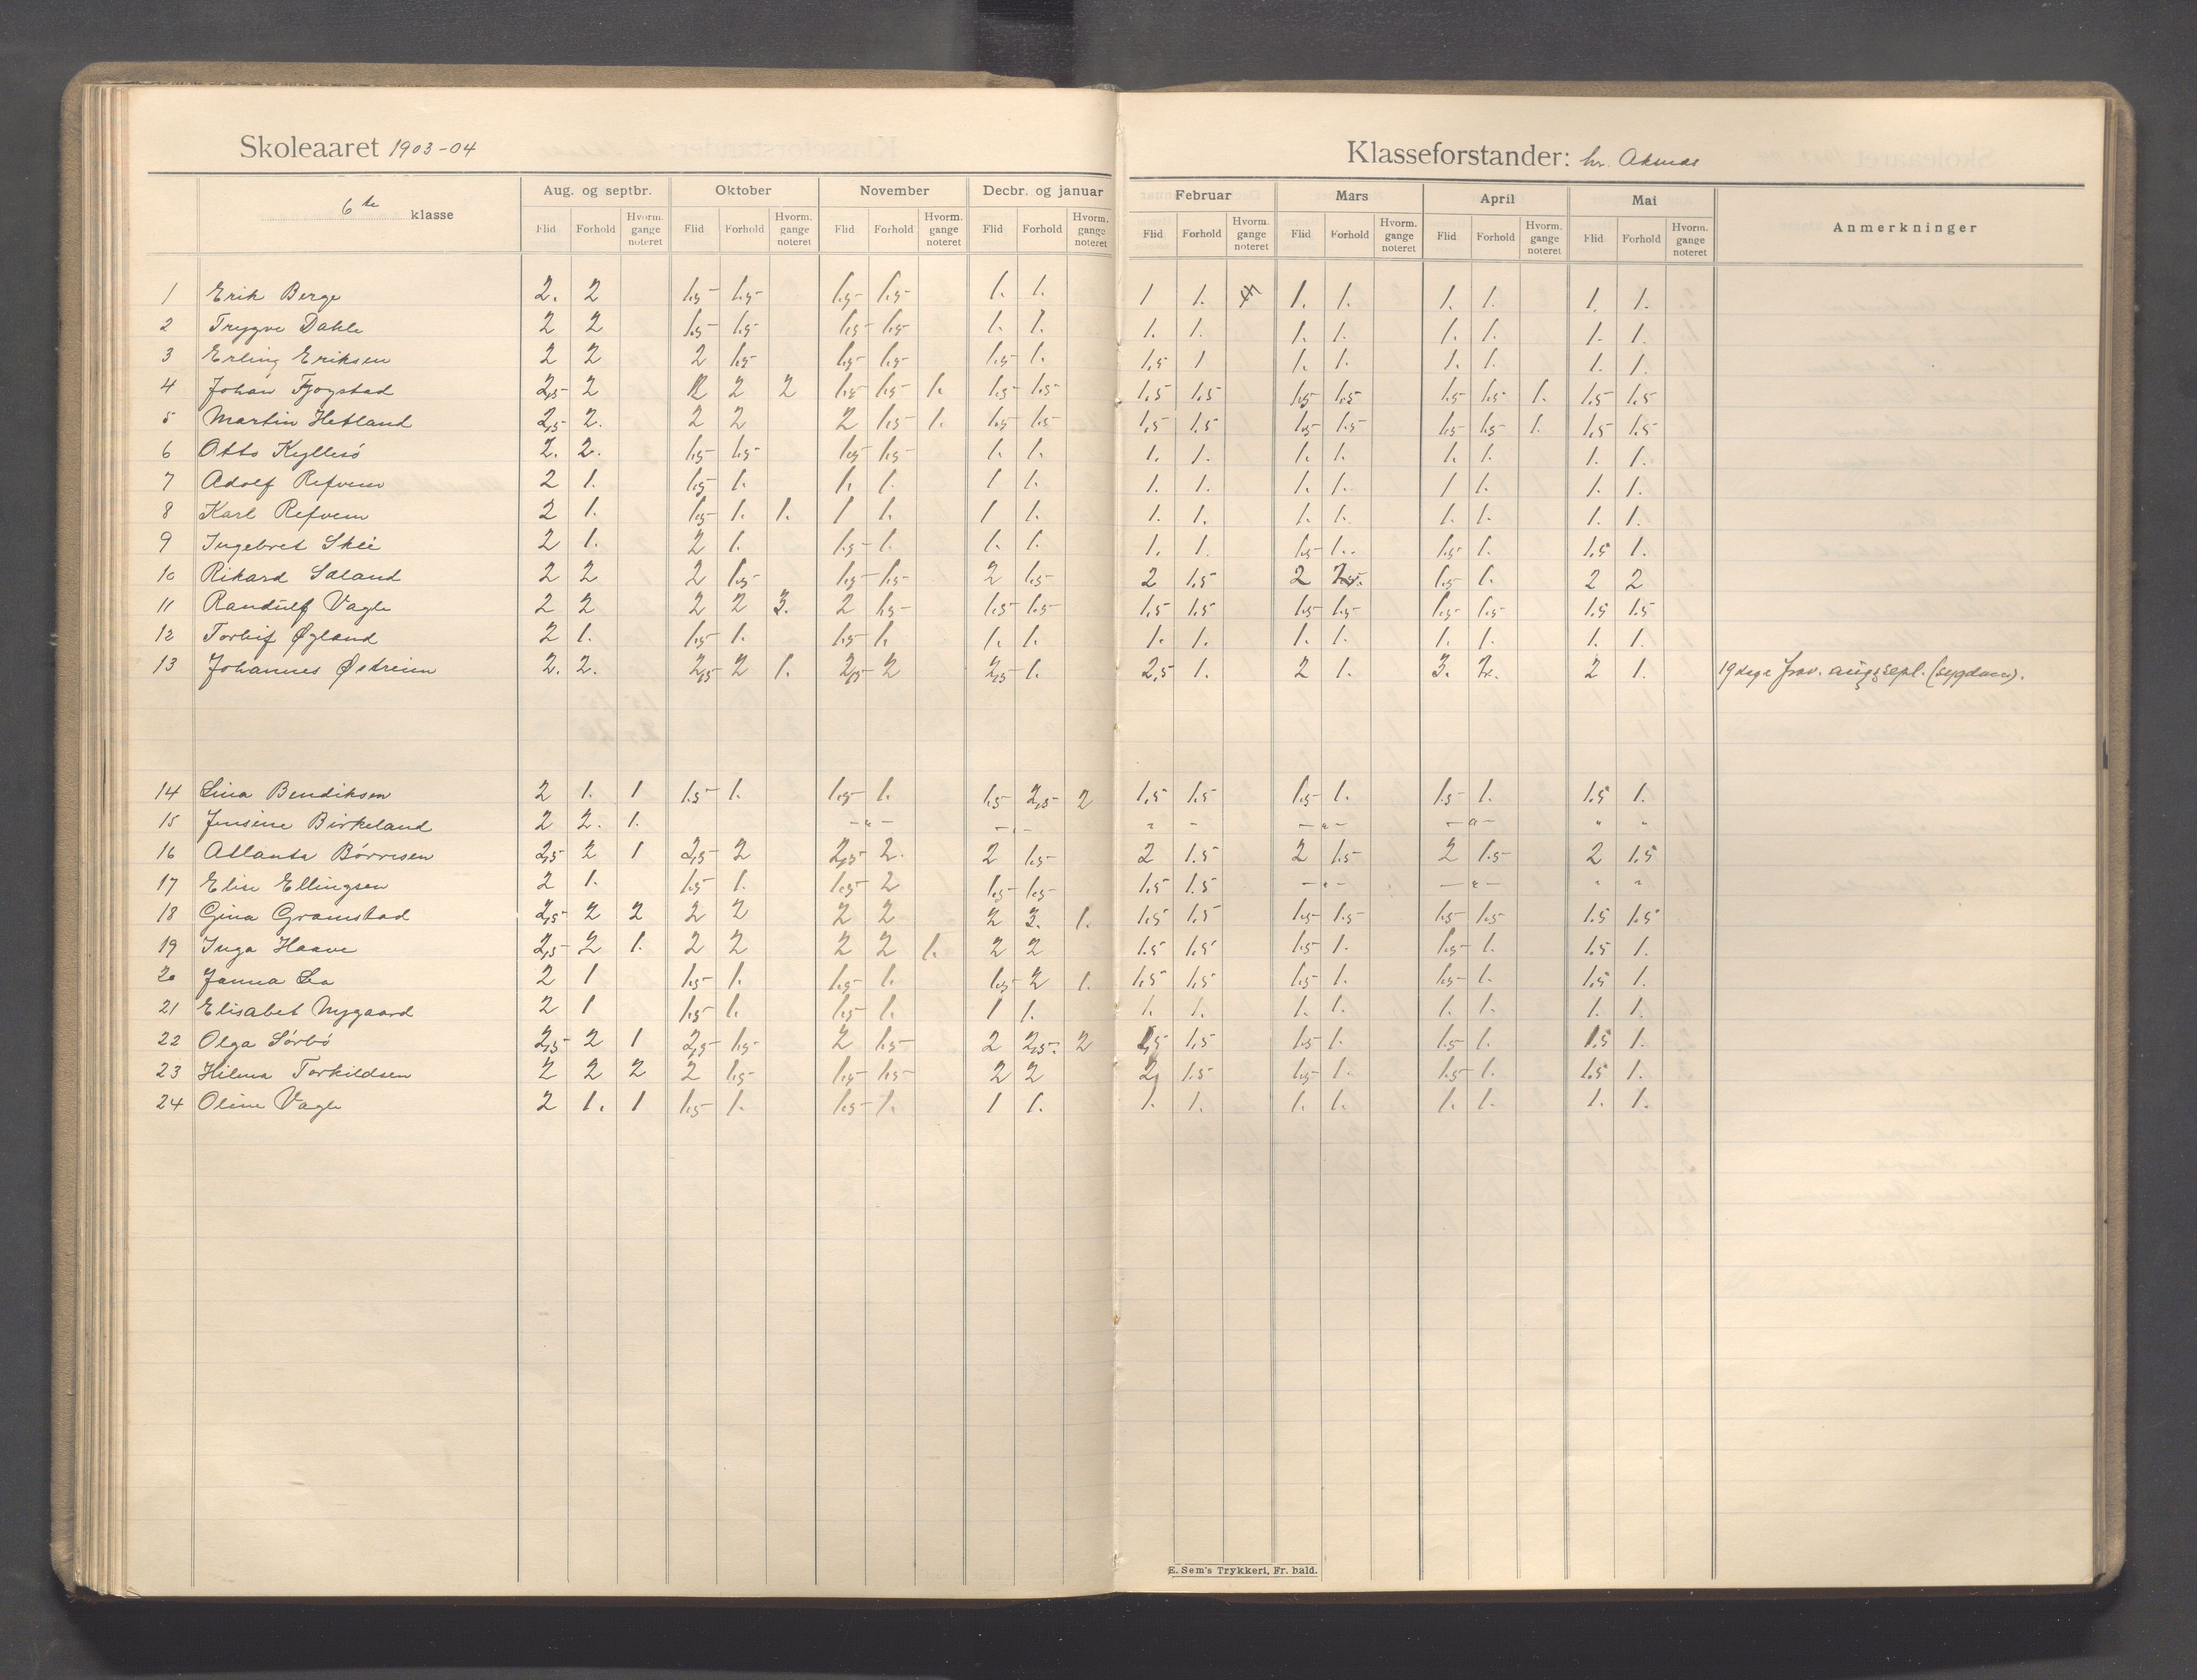 Skoleaaret 1903-04
Klasseforstander: hr.
6te klasse
Aug. og septbr. Oktober November Decbr. og januar Februar Mars April Mai Anmerkninger
Flid Forhold Hvorm. gange noteret Flid Forhold Hvorm. gange noteret Flid Forhold Hvorm. gange noteret Flid Forhold Hvorm. gange noteret Flid Forhold Hvorm. gange noteret Flid Forhold Hvorm. gange noteret Flid Forhold Hvorm. gange noteret Flid Forhold Hvorm. gange noteret
1 Erik Berge 2. 2 1.5- 1.5- 1.5- 1.5- 1. 1. 1 1. 1. 1. 1. 1. 1. 1.
2 Trygve Dahle 2 2 1.5- 1.5- 1.5- 1.5- 1. 1. 1. 1. 1. 1. 1. 1. 1. 1.
3 Erling Eriksen 2 2 2 1.5- 1.5- 1.5- 1.5- 1. 1,5 1 1. 1. 1. 1. 1. 1.
4 Johan Fjogstad 2,5- 2 2 2 2 1.5- 1.5- 1. 1.5- 1.5- 1.5 1.5 1.5- 1.5- 1.5- 1.5- 1. 1.5- 1.5
5 Martin Hetland 2,5- 2. 2 2 2 1.5- 1. 1.5- 1.5- 1,5 1.5 1.5- 1.5- 1.5- 1.5- 1. 1.5 1.5-
6 Otto Kyllesö 2. 2. 1.5- 1.5- 1.5- 1.5- 1. 1. 1. 1. 1. 1. 1. 1. 1. 1.
7 Adolf Refvem 2 1. 1.5- 1. 1. 1. 1 1. 1. 1. 1. 1. 1 1. 1. 1.
8 Karl Refvem 2 1. 1.5- 1. 1. 1 1. 1 1. 1. 1. 1. 1. 1. 1. 1. 1.
9 Ingebret Skeie 2 1. 2 1. 1.5- 1. 1. 1. 1. 1. 1.5- 1. 1.5- 1. 1.5 1.
10 Rikard Sæland 2 2 2 1.5- 1.5- 1.5- 2 1.5- 2 1.5 2 1.5- 1. 2 2
11 Randulf Vagle 2 2 2 2 3. 2 1.5- 1.5- 1.5- 1.5 1.5 1.5- 1.5- 1.5- 1.5- 1.5 1.5
12 Øgland 2 1. 1.5- 1. 1.5- 1. 1. 1. 1. 1. 1. 1. 1. 1. 1. 1.
13 Johannes Østreim 2. 2. 2,5- 2 1. 2,5- 2 2,5- 1. 2,5 1. 2 1. 3. 2. 2 1. 19 dage frav. aug. sept. (sygdom).
14 Lina Bendiksen 2 1. 1 1.5- 1. 1.5- 1. 1.5- 2,5- 2 1.5 1.5 1.5- 1. 1.5- 1. 1.5 1.
15 Jensine Birkeland 2 2. 1. -"- -"- " - -"- -"- " "
16 Atlanta Börresen 2,5 2 1 2,5- 2 2,5- 2. 2 1.5- 2 1.5 2 1.5- 2 1.5- 2 1.5
17 Elise Ellingsen 2 1. 1.5- 1. 1.5- 2 1.5- 1.5- 1.5 1.5 -"- -"- " "
18 Gina Gramstad 2,5- 2 2 2 2 2 2 2 3. 1. 1.5 1.5- 1.5- 1.5- 1.5- 1.5- 1.5 1.5
19 Inga Haave 2,5- 2 1. 2 2 2 2 1. 2 2 1.5 1.5 1.5- 1. 1.5- 1. 1.5 1.
20 Janna Lea 2 1 1.5- 1. 1.5- 1. 1.5- 2 1. 1.5 1.5 1.5- 1. 1.5- 1. 1.5 1.
21 Elisabet Nygaard 2 1 1.5- 1. 1.5- 1. 1 1. 1. 1. 1. 1. 1. 1. 1. 1.
22 Olga Sörbö 2,5- 2 1 2,5- 1.5- 2 1.5- 2 2,5- 2 1.5 1.5 1.5- 1. 1.5- 1. 1.5 1.
23 Hilma Torkildsen 2 2 2 2 1.5- 1.5- 1.5- 2 2 2 1.5 1.5- 1. 1.5- 1. 1.5 1.
24 Oline Vagle 2 1. 1 1.5- 1. 1.5- 1. 1 1. 1. 1. 1. 1. 1. 1. 1. 1.
E. Sem's Trykkeri, Fr.hald.